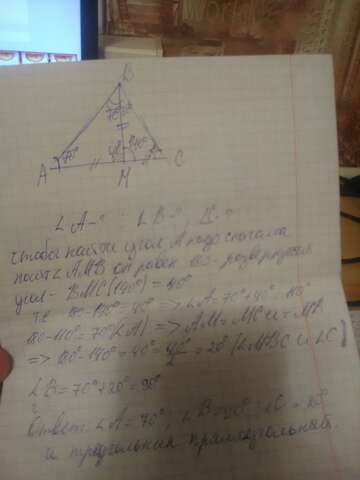 B
70°
70° 40° 140°
A M C
∠A-? ∠B-?, ∠C-?
чтобы найти угол A надо сначала
найти ∠AMB он равен 180- развернутый
угол - BMC (140°) = 40°
те 180-140=40° => ∠A=70°+40°=110°
180-110=70°(∠A) => AM=MC и = MA
=> 180°-140°=40°= 40°/2 = 20° (∠MBC и ∠C)
∠B=70°+20°=90°
Ответ: ∠A=70°; ∠B=90°; ∠C=20°
и треугольник прямоугольный.